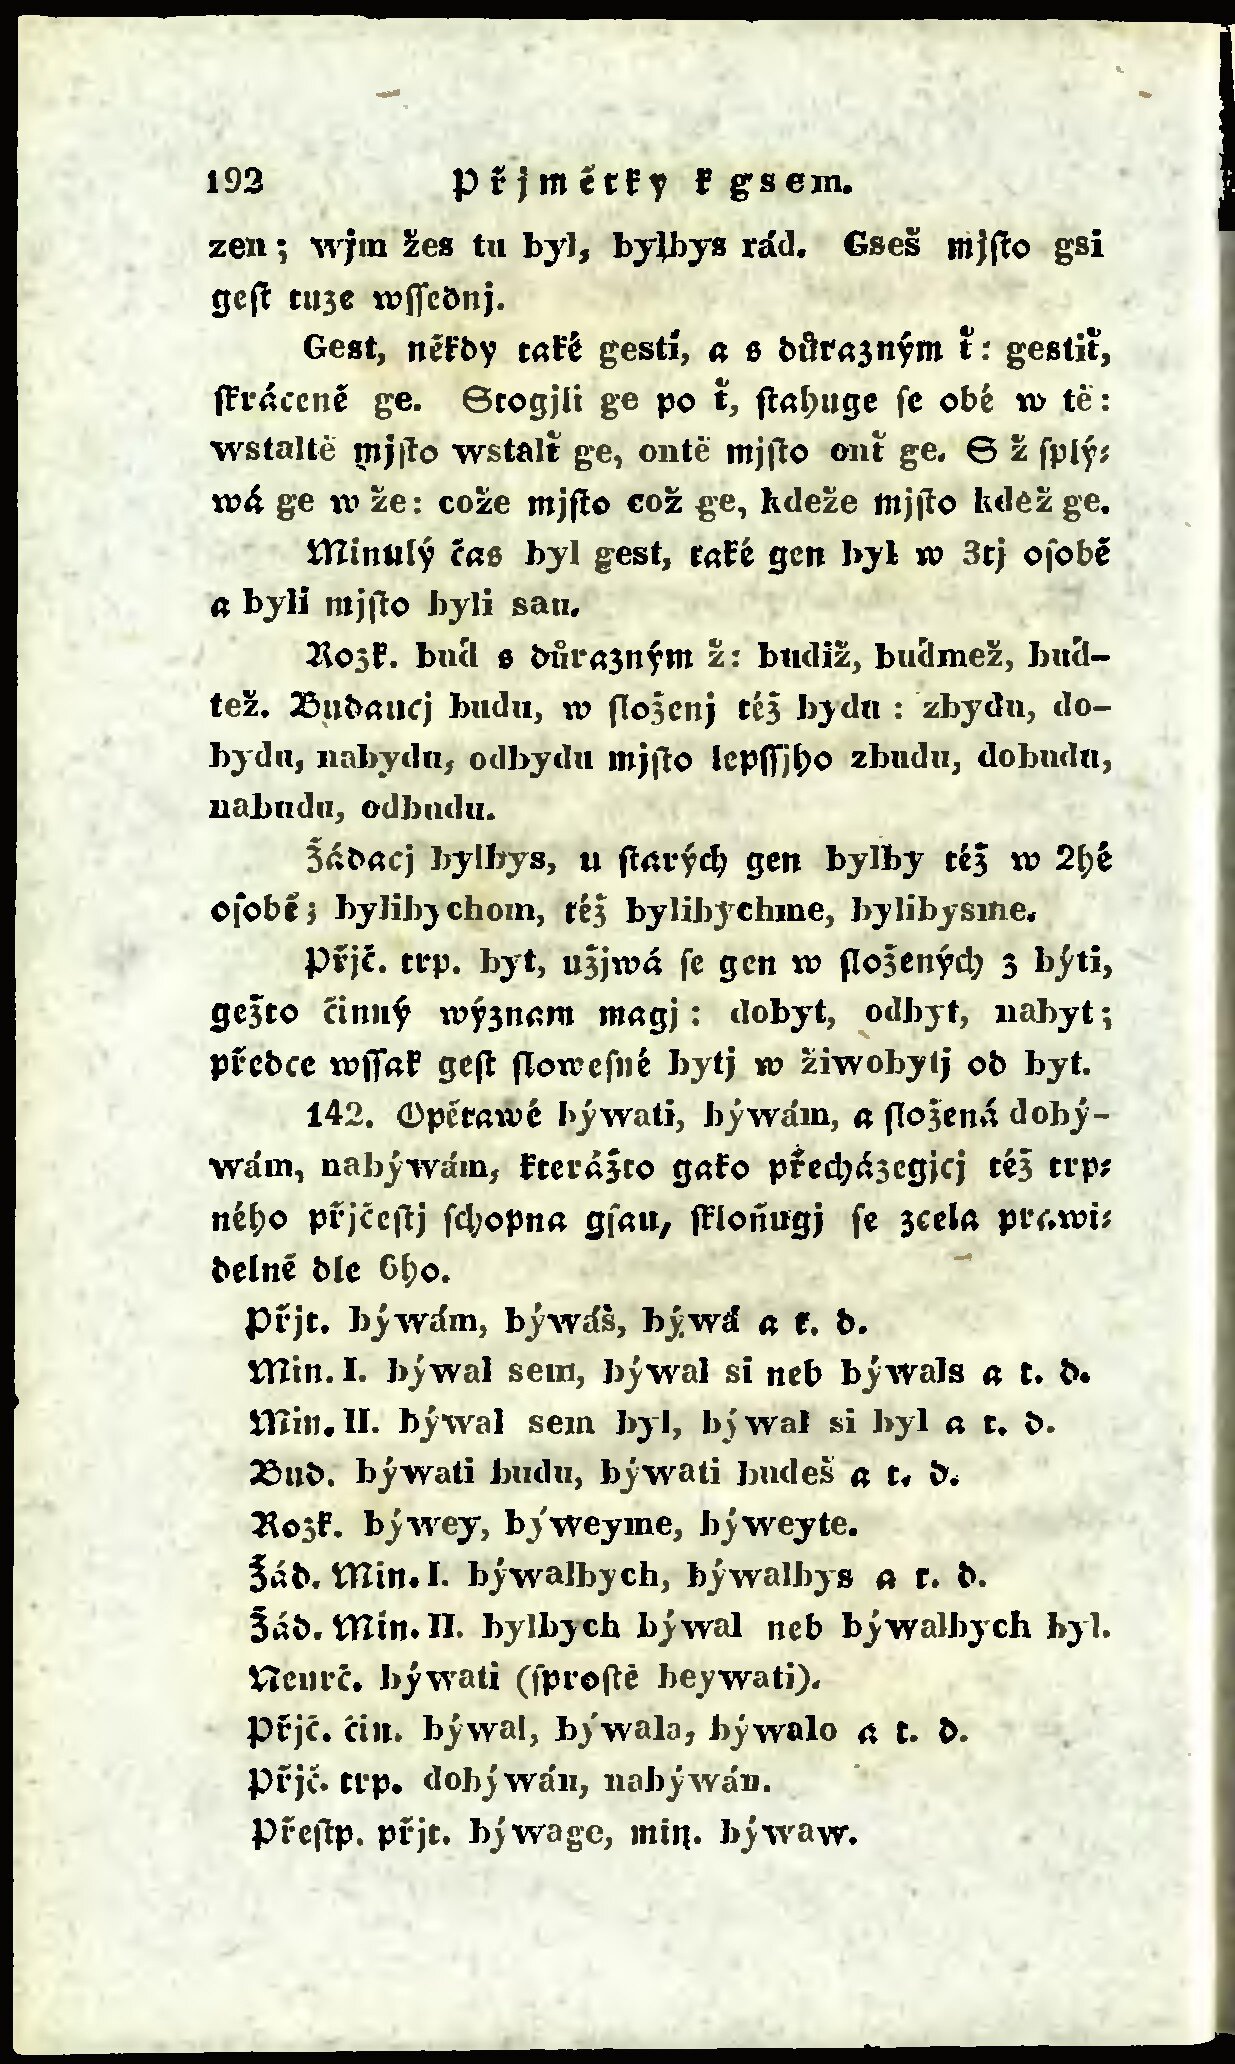 192 Přjmětky k gsem.
zen; wjm žes tu byl, bylbys rád. Gseš mjſto gsi
geſt tuze wſſednj.
Gest, někdy také gestí, a s důrazným ť: gestiť,
ſkráceně ge. Stogjli ge po ť, ſtahuge ſe obé w tě:
wstaltě mjſto wstalť ge, ontě mjſto onť ge. S ž ſplý⸗
wá ge w že: cože mjſto což ge, kdeže mjſto kdež ge.
Minulý čas byl gest, také gen byl w 3tj oſobě
a byli mjſto byli sau.
Rozk. buď s důrazným ž: budiž, buďmež, buď-
tež. Budaucj budu, w ſloženj též bydu: zbydu, do-
bydu, nabydu, odbydu mjſto lepſſjho zbudu, dobudu,
nabudu, odbudu.
Žádacj bylbys, u ſtarých gen bylby též w 2hé
oſobě; bylibychom, též bylibychme, bylibysme.
Přjč. trp. byt, užjwá ſe gen w ſložených z býti,
gežto činný význam magj: dobyt, odbyt, nabyt;
předce wſſak geſt ſloweſné bytj w žiwobytj od byt.
142. Opětawé býwati, býwám, a ſložená dobý-
wám, nabýwám, kterážto gako přecházegjcj též trp⸗
ného přjčeſtj ſchopna gſau, ſkloňugj ſe zcela prawi⸗
delně dle 6ho.
Přjt. býwám, býwáš, býwá a t. d.
Min. I. býwal sem, býwal si neb býwals a t. d.
Min. II. býwal sem byl, býwal si byl a t. d.
Bud. býwati budu, býwati budeš a t. d.
Rozk. býwey, býweyme, býweyte.
Žád. Min. I. býwalbych, býwalbys a t. d.
Žád. Min. II. bylbych býwal neb býwalbych byl.
Neurč. býwati (ſproſtě beywati).
Přjč. čin. býwal, býwala, býwalo a t. d.
Přjč. trp. dobýwán, nabýwán.
Přeſtp. přjt. býwage, min. býwaw.